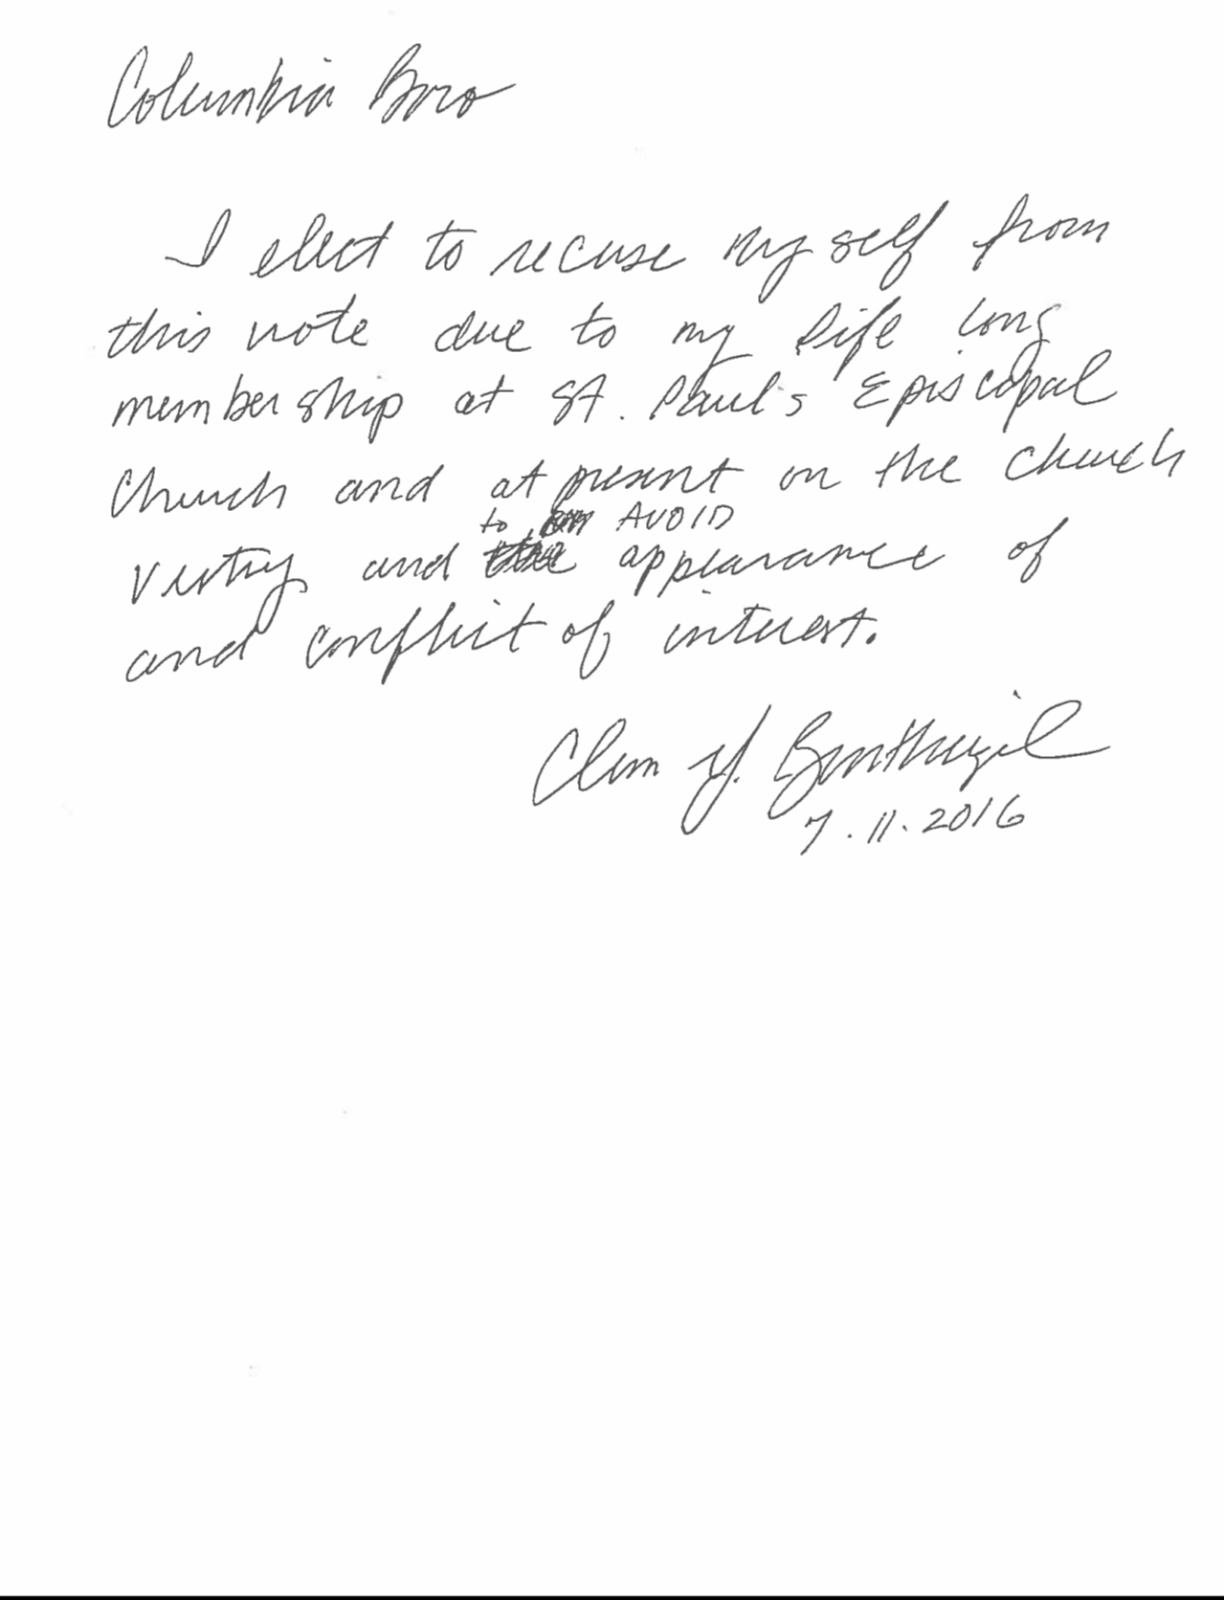 Columbia Boro
I elect to recuse myself from
this vote due to my life long
membership at St. Paul's Episcopal
Church and at present on the church
to AVOID
vestry and appearance of
and conflict of interest.
Clem y.
7.11.2016